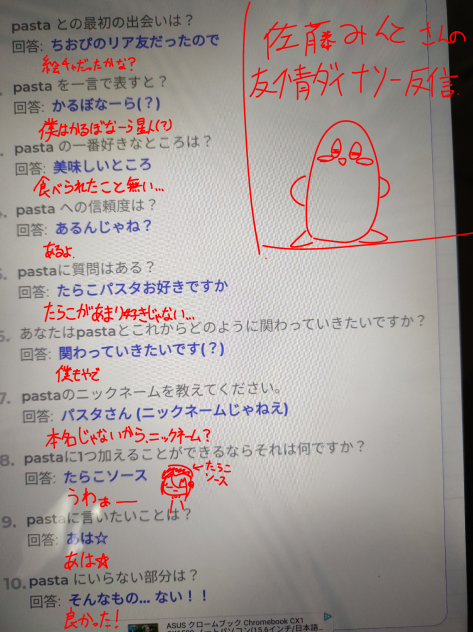 pasta との最初の出会いは？
回答: ちおぴのリア友だったので
絵チャだったかな？
pasta を一言で表すと？
回答: かるぼなーら(？)
僕はかるぼなーら星人(？)
pasta の一番好きなところは？
回答: 美味しいところ
食べられたこと無い…
pasta への信頼度は？
回答: あるんじゃね？
あるよ.
pastaに質問はある？
回答: たらこパスタお好きですか
たらこがあまり好きじゃない…
あなたはpastaとこれからどのように関わっていきたいですか？
回答: 関わっていきたいです(？)
僕もやで
7. pastaのニックネームを教えてください。
回答: パスタさん (ニックネームじゃねえ)
本名じゃないから、ニックネーム？
8. pastaに1つ加えることができるならそれは何ですか？
回答: たらこソース
うわぁー
←たらこ
ソース
9. pastaに言いたいことは？
回答: あは☆
あは☆
10. pasta にいらない部分は？
回答: そんなもの... ない！！
良かった！
佐藤みんとさんの
友情ダイナソー反信
ASUS クロームブック Chromebook CX1